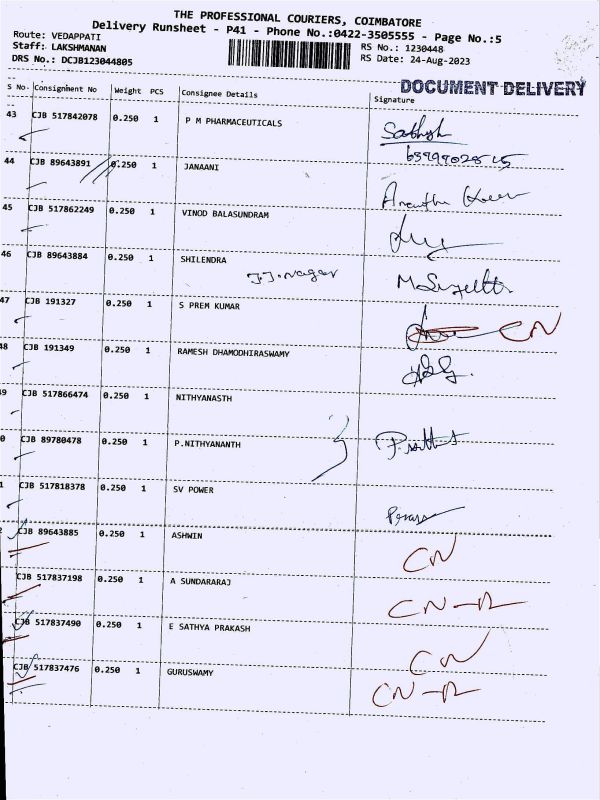 THE PROFESSIONAL COURIERS, COIMBATORE
Delivery Runsheet - P41 - Phone No.:0422-3505555 - Page No.:5
Route: VEDAPPATI
Staff: LAKSHMANAN
RS No.: 1230448
DRS No.: DCJB123044805
RS Date: 24-Aug-2023
DOCUMENT DELIVERY
S No. Consignment No Weight PCS Consignee Details Signature
43 CJB 517842078 0.250 1 P M PHARMACEUTICALS
44 CJB 89643891 0.250 1 JANAANI
45 CJB 517862249 0.250 1 VINOD BALASUNDRAM
46 CJB 89643884 0.250 1 SHILENDRA
J.J. nagar
47 CJB 191327 0.250 1 S PREM KUMAR CN
48 CJB 191349 0.250 1 RAMESH DHAMODHIRASWAMY
9 CJB 517866474 0.250 1 NITHYANASTH
0 CJB 89780478 0.250 1 P.NITHYANANTH
1 CJB 517818378 0.250 1 SV POWER
2 CJB 89643885 0.250 1 ASHWIN CN
CJB 517837198 0.250 1 A SUNDARARAJ CN-R
CJB 517837490 0.250 1 E SATHYA PRAKASH CN
CJB 517837476 0.250 1 GURUSWAMY CN-R